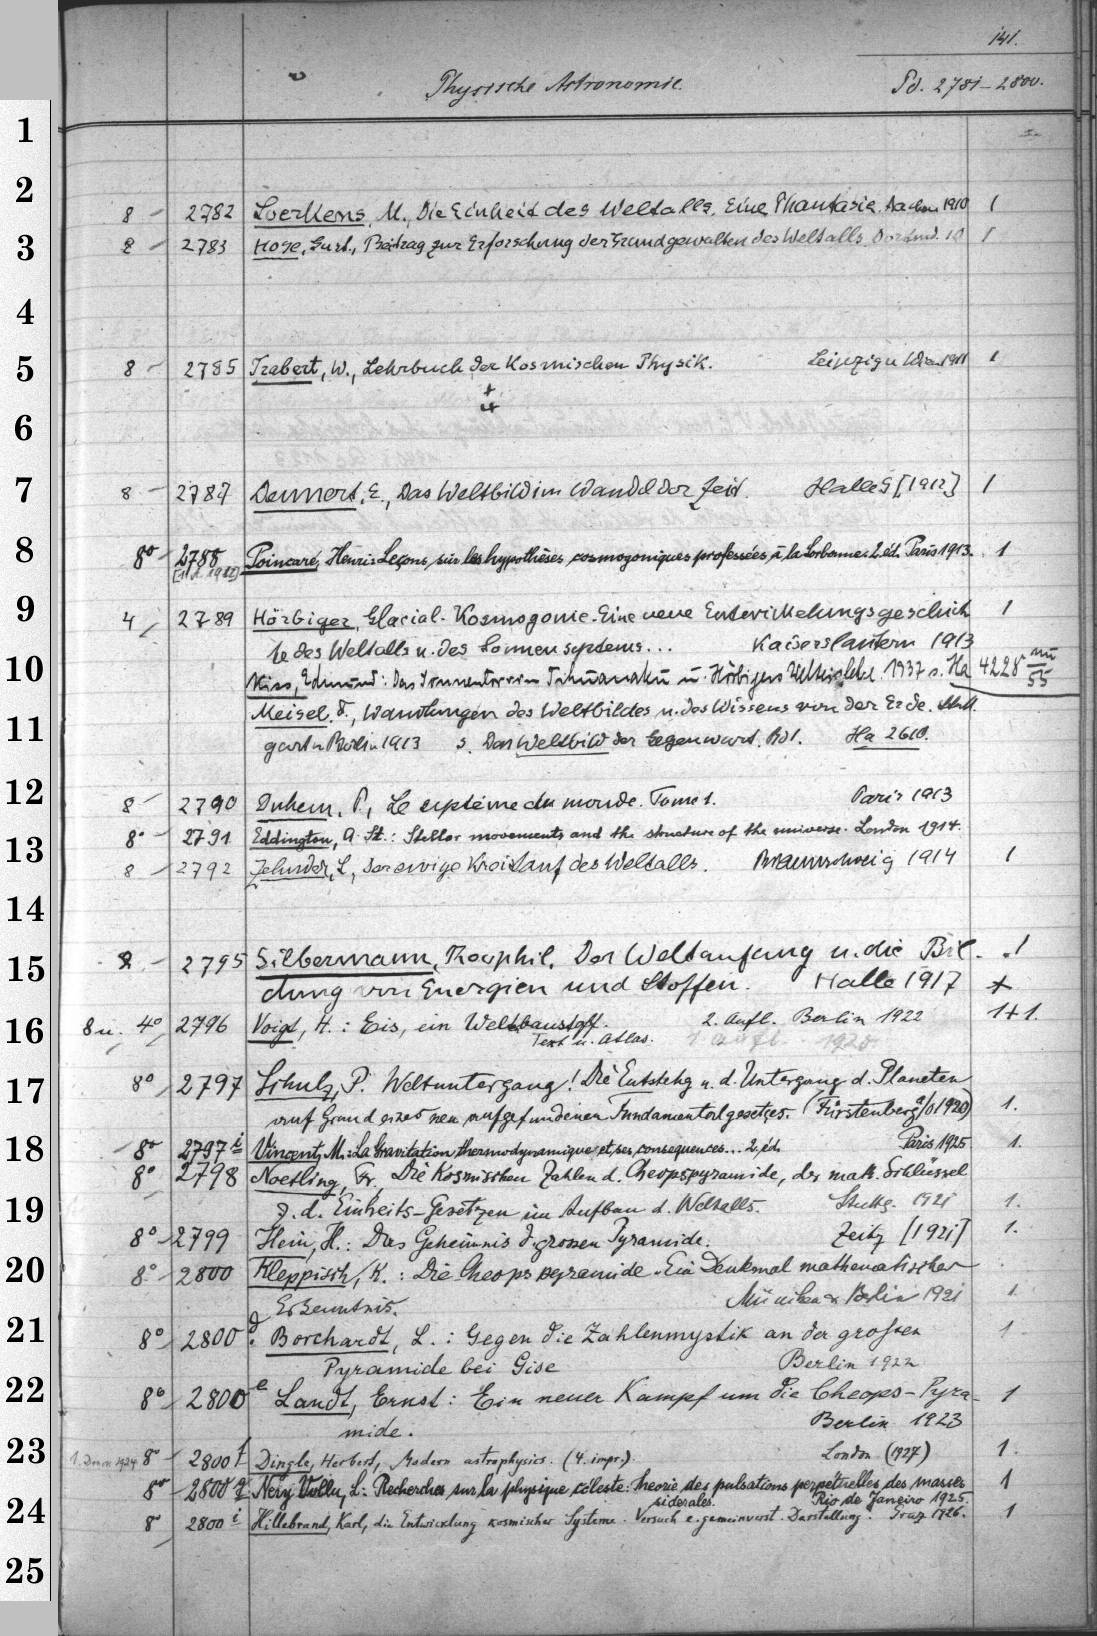 141.
Physische Astronomie. Pd. 2781–2800.
1
2
8 – 2782 Loerkens, M., Die Einheit des Weltalls. Eine Phantasie. Aachen 1910 1
3
8 – 2783 Hose, Gust., Beitrag zur Erforschung der Grundgewalten des Weltalls. Dortmd. 10 1
4
5
8 – 2785 Trabert, W., Lehrbuch der kosmischen Physik. Leipzig u Wien 1911 1
6
7
8 – 2787 Dennert, E., Das Weltbild im Wandel der Zeit. Halle S [1912] 1
8
8° 2788 Poincaré, Henri: Leçons sur les hypothèses cosmogoniques professées à la Sorbonne. 2. éd. Paris 1913. 1
9
4 2789 Hörbiger, Glacial-Kosmogonie. Eine neue Entwickelungsgeschich
te des Weltalls u. des Sonnensystems... Kaiserslautern 1913 1
10
Kiss, Edmund: Das Sonnentor von Tihuanaku u. Hörbigers Welteislehre. 1937 s. Ha 4228
55
Meisel, F., Wandlungen des Weltbildes u. des Wissens von der Erde. Stutt
11
gart u Berlin 1913 s. Das Weltbild der Gegenwart. Bd 1. Ha 2610.
12
8 – 2790 Duhem, P., Le système du monde. Tome 1. Paris 1913
8° 2791 Eddington, A. St.: Stellar movements and the structure of the universe. London 1914.
13
8 – 2792 Zehnder, L., Der ewige Kreislauf des Weltalls. Braunschweig 1914 1
14
15
8 – 2795 Silbermann, Theophil, Der Weltanfang u. die Bil- 1
dung von Energien und Stoffen. Halle 1917 *
16
8 u. 4° 2796 Voigt, H.: Eis, ein Weltbaustoff. 2. Aufl. Berlin 1922 1+1.
Text u. Atlas. 1920
17
8° 2797 Schulz, P. Weltuntergang! Die Entstehg u. d. Untergang d. Planeten
auf Grund eines neu aufgefundenen Fundamentalgesetzes. (Fürstenberg a/O 1920) 1.
18
8° 2797 i Vincent, M.: La Gravitation thermodynamique et ses consequences... 2. éd. Paris 1925 1.
8° 2798 Noetling, Fr. Die kosmischen Zahlen d. Cheopspyramide, der math. Schlüssel
19
z. d. Einheits-Gesetzen im Aufbau d. Weltalls. Stuttg. 1921 1.
8° 2799 Hein, H.: Das Geheimnis d. grossen Pyramide. Zeitz [1921] 1.
20
8° 2800 Kleppisch, K.: Die Cheopspyramide. Ein Denkmal mathematischer
Erkenntnis. München & Berlin 1921 1
21
8° 2800 d Borchardt, L.: Gegen die Zahlenmystik an der grofsen 1
Pyramide bei Gise Berlin 1922
22
8° 2800 e Landt, Ernst: Ein neuer Kampf um die Cheops-Pyra- 1
mide. Berlin 1923
23
8° 2800 f Dingle, Herbert, Modern astrophysics. (4. impr.) London (1927) 1.
8° 2800 g Nery Vollu, L.: Recherches sur la physique céleste: theorie des pulsations perpétuelles des masses 1
24
siderales. Rio de Janeiro 1925.
8° 2800 i Hillebrand, Karl, die Entwicklung kosmischer Systeme. Versuch e. gemeinverst. Darstellung. Graz 1926. 1
25